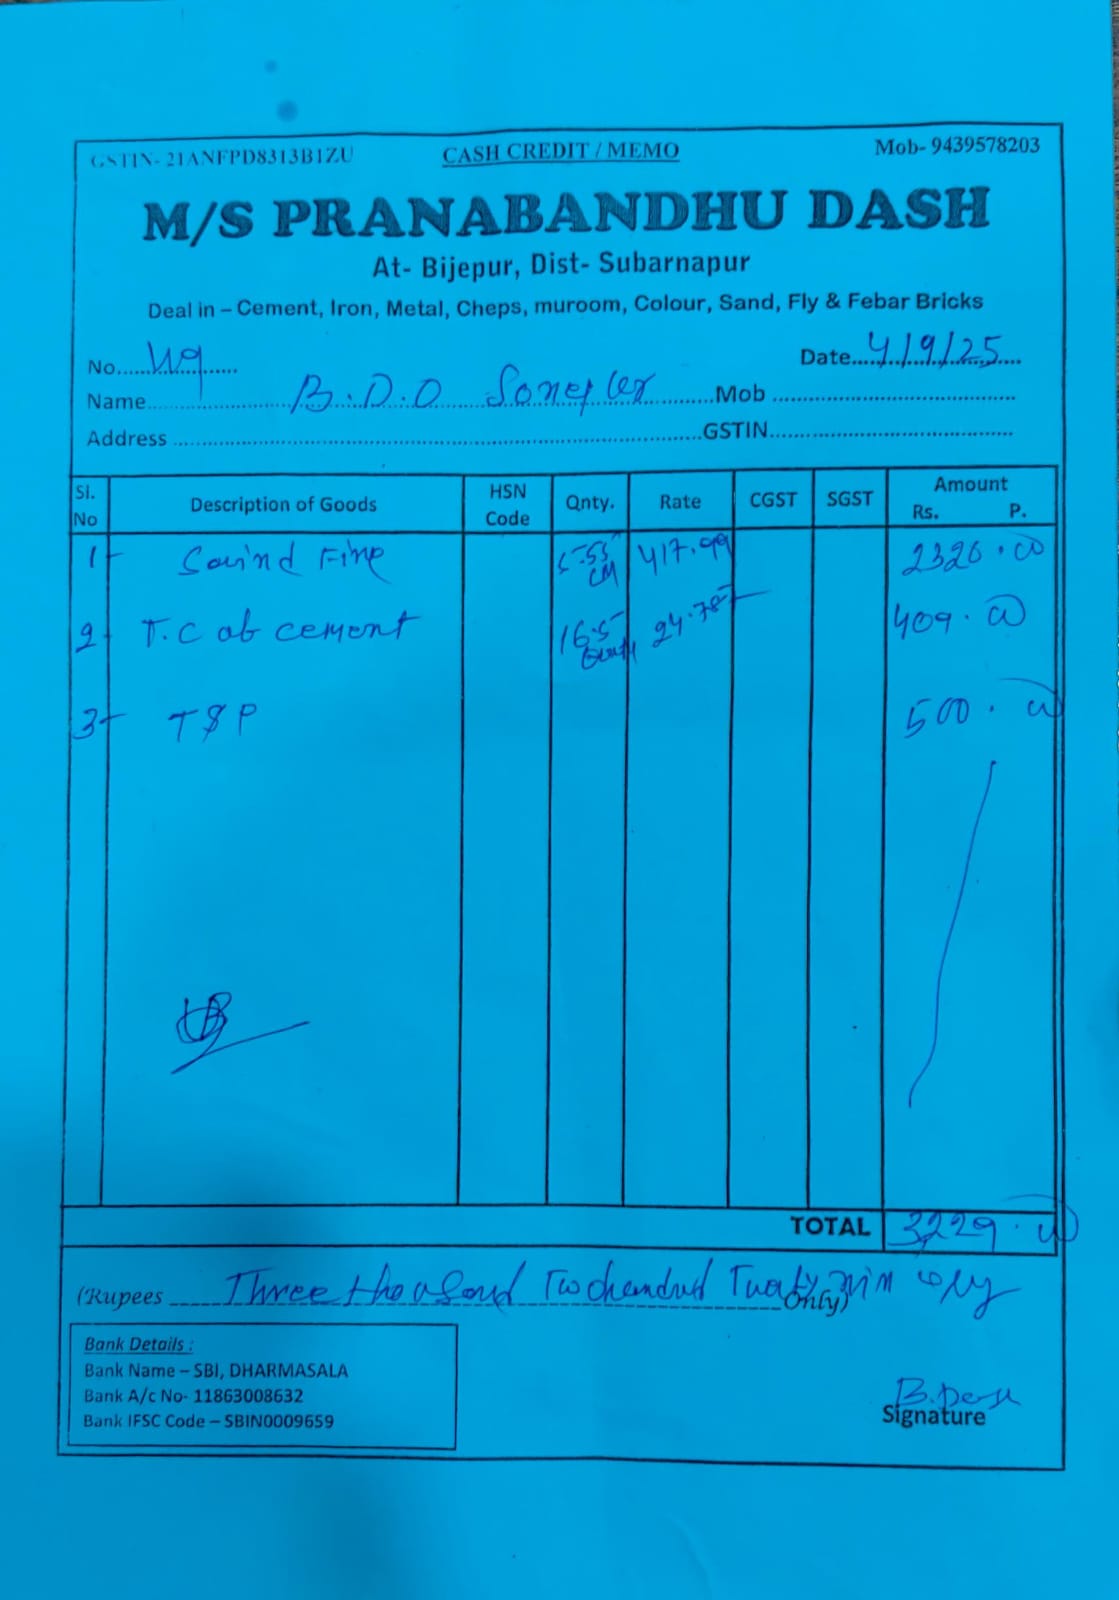 GSTIN- 21ANFPD8313B1ZU CASH CREDIT / MEMO Mob- 9439578203
M/S PRANABANDHU DASH
At- Bijepur, Dist- Subarnapur
Deal in – Cement, Iron, Metal, Cheps, muroom, Colour, Sand, Fly & Febar Bricks
No...... Date....4/9/25....
Name............B.D.O............Mob ............
Address ............GSTIN............
Sl. No Description of Goods HSN Code Qnty. Rate CGST SGST Amount Rs. P.
1- Fine 5.55 CM 417.99 2320.00
2- T.C of cement 16.5 24.78 409.00
3- T&P 500.00
TOTAL 3229.00
(Rupees Three thousand Two hundred Twenty nine only Only)
Bank Details :
Bank Name – SBI, DHARMASALA
Bank A/c No- 11863008632
Bank IFSC Code – SBIN0009659
B.Dash
Signature